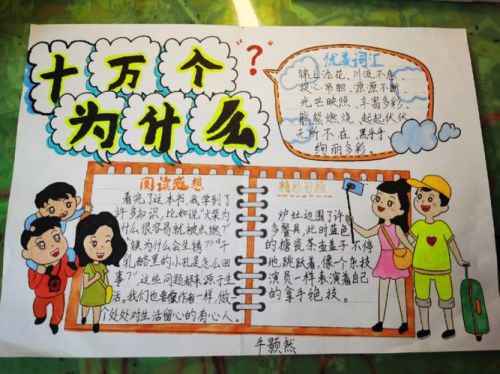 十万个
为什么
“?”
优美词汇
锦上添花、川流不息、
提心吊胆、源源不断、
光芒映照、丰富多彩、
熊熊燃烧、起起伏伏
无所不在、黑乎乎
绚丽多彩。
阅读感想
看完了这本书,我学到了
许多知识,比如说“火柴为
什么很容易就被点燃?”
“铁为什么会生锈?”“干
乳酪里的小孔是怎么回
事?”这些问题都来源于生
活。我们也要像作者一样,做一
个处处对生活留心的有心人。
精彩片段
炉灶边围了许
多餐具,此时蓝色
的搪瓷茶壶盖子不停
地跳跃着,像一个杂技
演员一样表演着自己
的拿手绝技。
牛颢然